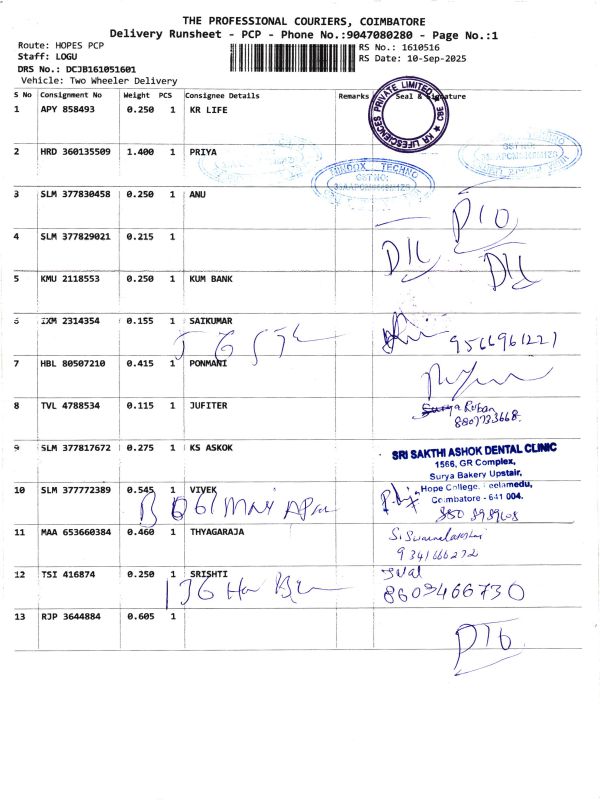 THE PROFESSIONAL COURIERS, COIMBATORE
Delivery Runsheet - PCP - Phone No.:9047080280 - Page No.:1
Route: HOPES PCP
RS No.: 1610516
Staff: LOGU
RS Date: 10-Sep-2025
DRS No.: DCJB161051601
Vehicle: Two Wheeler Delivery
S No Consignment No Weight PCS Consignee Details Remarks Seal & Signature
1 APY 858493 0.250 1 KR LIFE
KR LIFESCIENCES PRIVATE LIMITED
2 HRD 360135509 1.400 1 PRIYA
TECHNO
GST NO:
3 SLM 377830458 0.250 1 ANU
4 SLM 377829021 0.215 1
5 KMU 2118553 0.250 1 KUM BANK
6 IXM 2314354 0.155 1 SAIKUMAR
9566961221
7 HBL 80507210 0.415 1 PONMANI
8 TVL 4788534 0.115 1 JUFITER
Surya Ruban
8807733668
9 SLM 377817672 0.275 1 KS ASKOK
SRI SAKTHI ASHOK DENTAL CLINIC
1566, GR Complex,
Surya Bakery Upstair,
Hope College, Peelamedu,
Coimbatore - 641 004.
10 SLM 377772389 0.545 1 VIVEK
11 MAA 653660384 0.460 1 THYAGARAJA
9341666272
12 TSI 416874 0.250 1 SRISHTI
8609466730
13 RJP 3644884 0.605 1